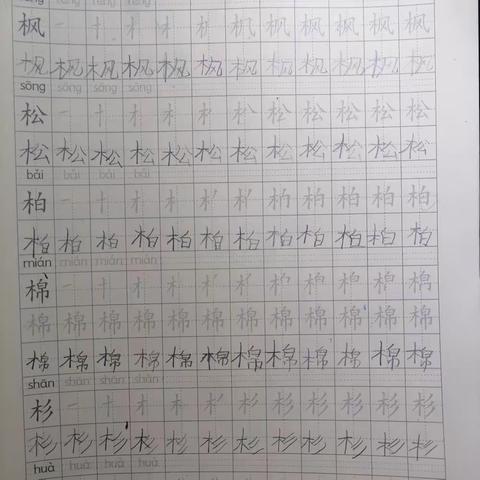 枫 一 十 木 枫 枫 枫 枫 枫
枫 枫 枫 枫 枫 枫 枫 枫 枫 枫 枫 枫
sōng sōng sōng sōng
松 一 十 木 松 松 松 松
松 松 松 松 松 松 松 松 松 松 松 松
bǎi bǎi bǎi bǎi
柏 一 十 木 柏 柏 柏 柏
柏 柏 柏 柏 柏 柏 柏 柏 柏 柏 柏 柏
mián mián mián mián
棉 一 十 木 棉
棉 棉 棉 棉 棉 棉 棉 棉 棉 棉 棉 棉
棉 棉 棉 棉 棉 棉 棉 棉 棉 棉 棉 棉
shān shān shān shān
杉 一 十 木 杉 杉 杉 杉 杉
杉 杉 杉 杉 杉 杉 杉 杉 杉 杉 杉 杉
huà huà huà huà